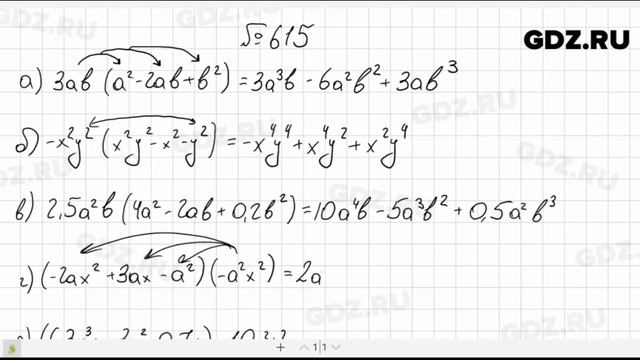 № 615
GDZ.RU
а) 3ab (a² - 2ab + b²) = 3a³b - 6a²b² + 3ab³
б) -x²y² (x²y² - x² - y²) = -x⁴y⁴ + x⁴y² + x²y⁴
в) 2,5a²b (4a² - 2ab + 0,2b²) = 10a⁴b - 5a³b² + 0,5a²b³
г) (-2ax² + 3ax - a²)(-a²x²) = 2a
+ 1|1